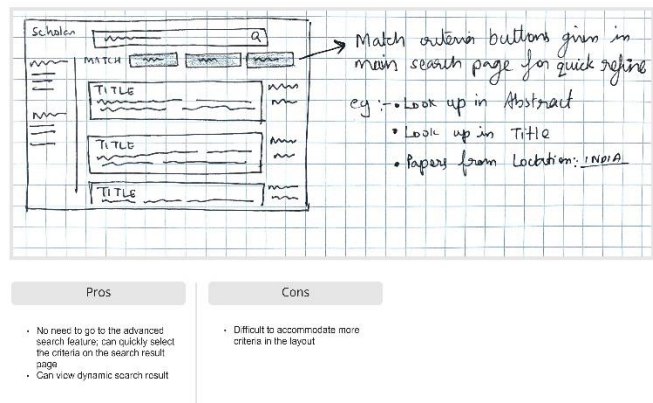 Scholar
MATCH
TITLE
TITLE
TITLE
Match criteria buttons given in
main search page for quick refine
eg :- • Look up in Abstract
• Look up in Title
• Papers from Location: INDIA
Pros
• No need to go to the advanced
search feature, can quickly select
the criteria on the search result
page
• Can view dynamic search result
Cons
• Difficult to accommodate more
criteria in the layout